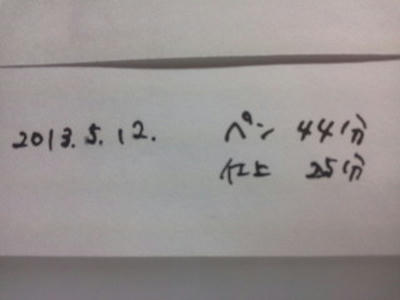 2013.5.12. ペン 44分
仕上 25分